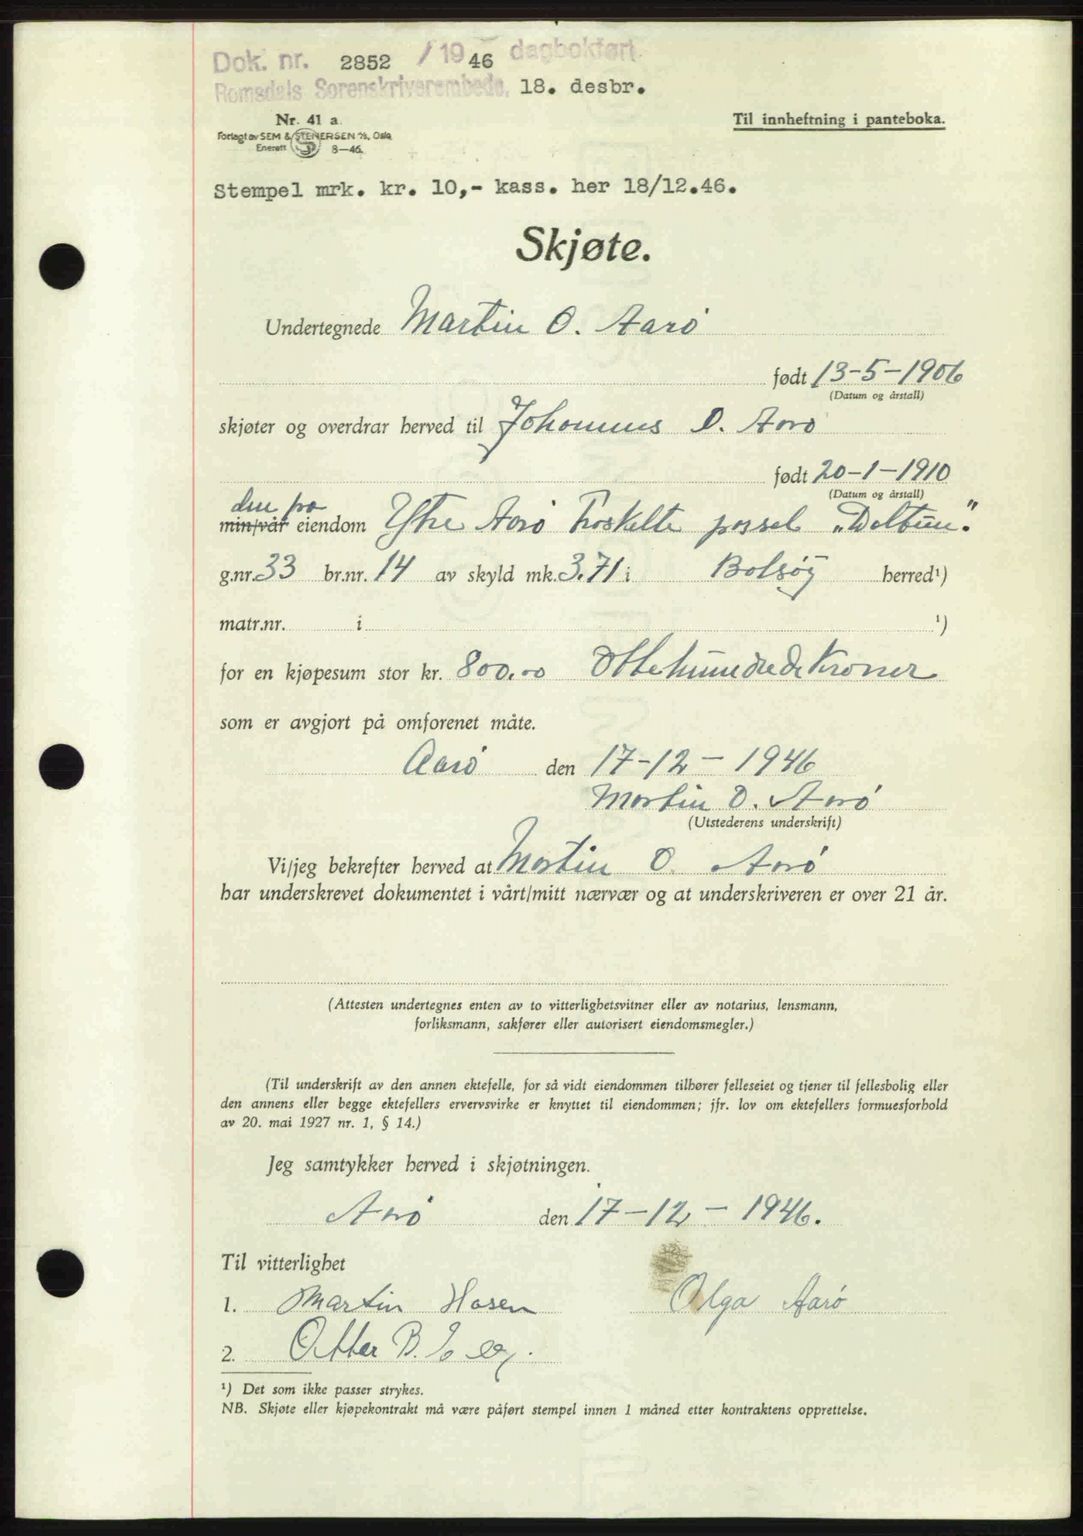 Dok. nr. 2852 / 19 46 dagbokført
Romsdals Sorenskriverembede, 18. desbr.
Nr. 41 a.
Til innheftning i panteboka.
Forlagt av SEM & STENERSEN A/S, Oslo
Enerett 8-46.
Stempel mrk. kr. 10,- kass. her 18/12.46.
Skjøte.
Undertegnede Martin O. Aarö
født 13-5-1906
(Datum og årstall)
skjøter og overdrar herved til Johannes O. Aarö
født 20-1-1910
(Datum og årstall)
den fra
min/vår eiendom Ytre Aarö fraskilte parsel "Daltun".
g.nr. 33 br.nr. 14 av skyld mk. 3.71 i Bolsöy herred¹)
matr.nr. i ¹)
for en kjøpesum stor kr. 800.00 Ottehundrede Kroner
som er avgjort på omforenet måte.
Aarö den 17-12-1946
Martin O. Aarö
(Utstederens underskrift)
Vi/jeg bekrefter herved at Martin O. Aarö
har underskrevet dokumentet i vårt/mitt nærvær og at underskriveren er over 21 år.
(Attesten undertegnes enten av to vitterlighetsvitner eller av notarius, lensmann,
forliksmann, sakfører eller autorisert eiendomsmegler.)
(Til underskrift av den annen ektefelle, for så vidt eiendommen tilhører felleseiet og tjener til fellesbolig eller
den annens eller begge ektefellers ervervsvirke er knyttet til eiendommen; jfr. lov om ektefellers formuesforhold
av 20. mai 1927 nr. 1, § 14.)
Jeg samtykker herved i skjøtningen.
Aarö den 17-12-1946.
Til vitterlighet
1. Martin Hasen Olga Aarö
2. Otter B.
¹) Det som ikke passer strykes.
NB. Skjøte eller kjøpekontrakt må være påført stempel innen 1 måned etter kontraktens opprettelse.